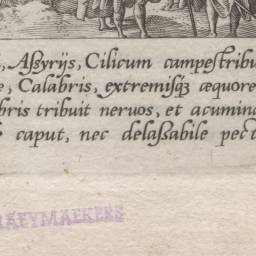 , Aßyrijs, Cilicum campestribu
, Calabris, extremisq́ꝫ æquore
bris tribuit neruos, et acumina
caput, nec delaßabile pect
RAEYMAEKERS